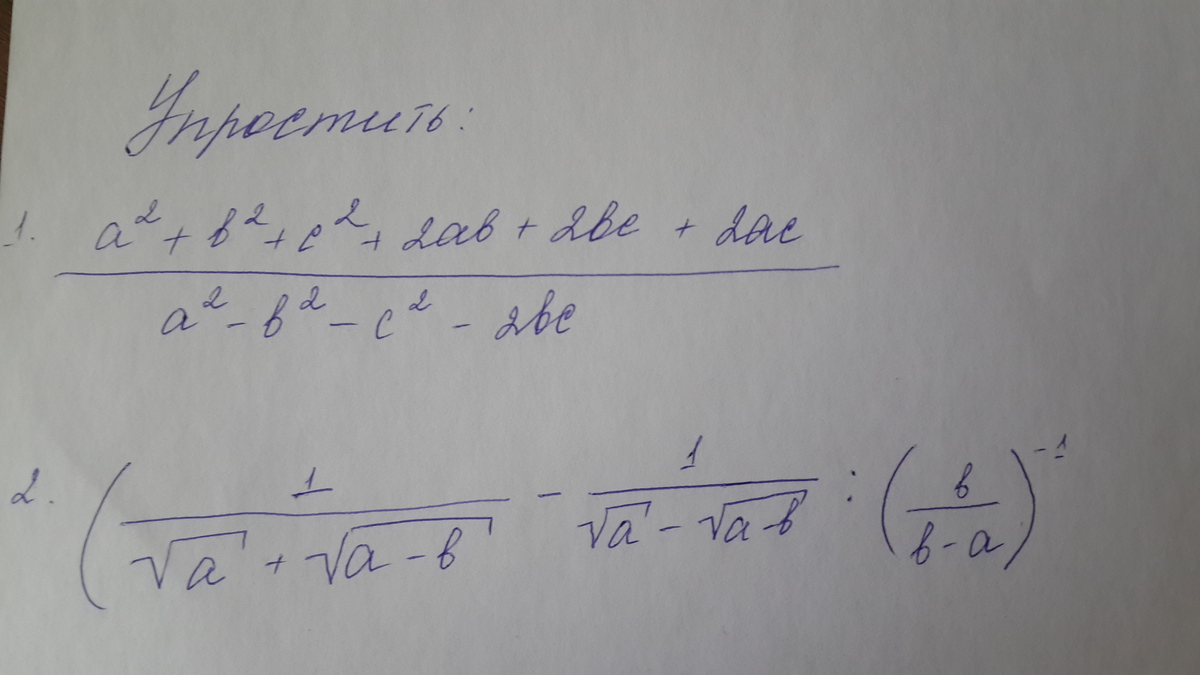 Упростить:
1. (a² + b² + c² + 2ab + 2bc + 2ac) / (a² - b² - c² - 2bc)
2. ( 1 / (√a + √(a - b)) - 1 / (√a - √(a - b)) : (b / (b - a))⁻¹